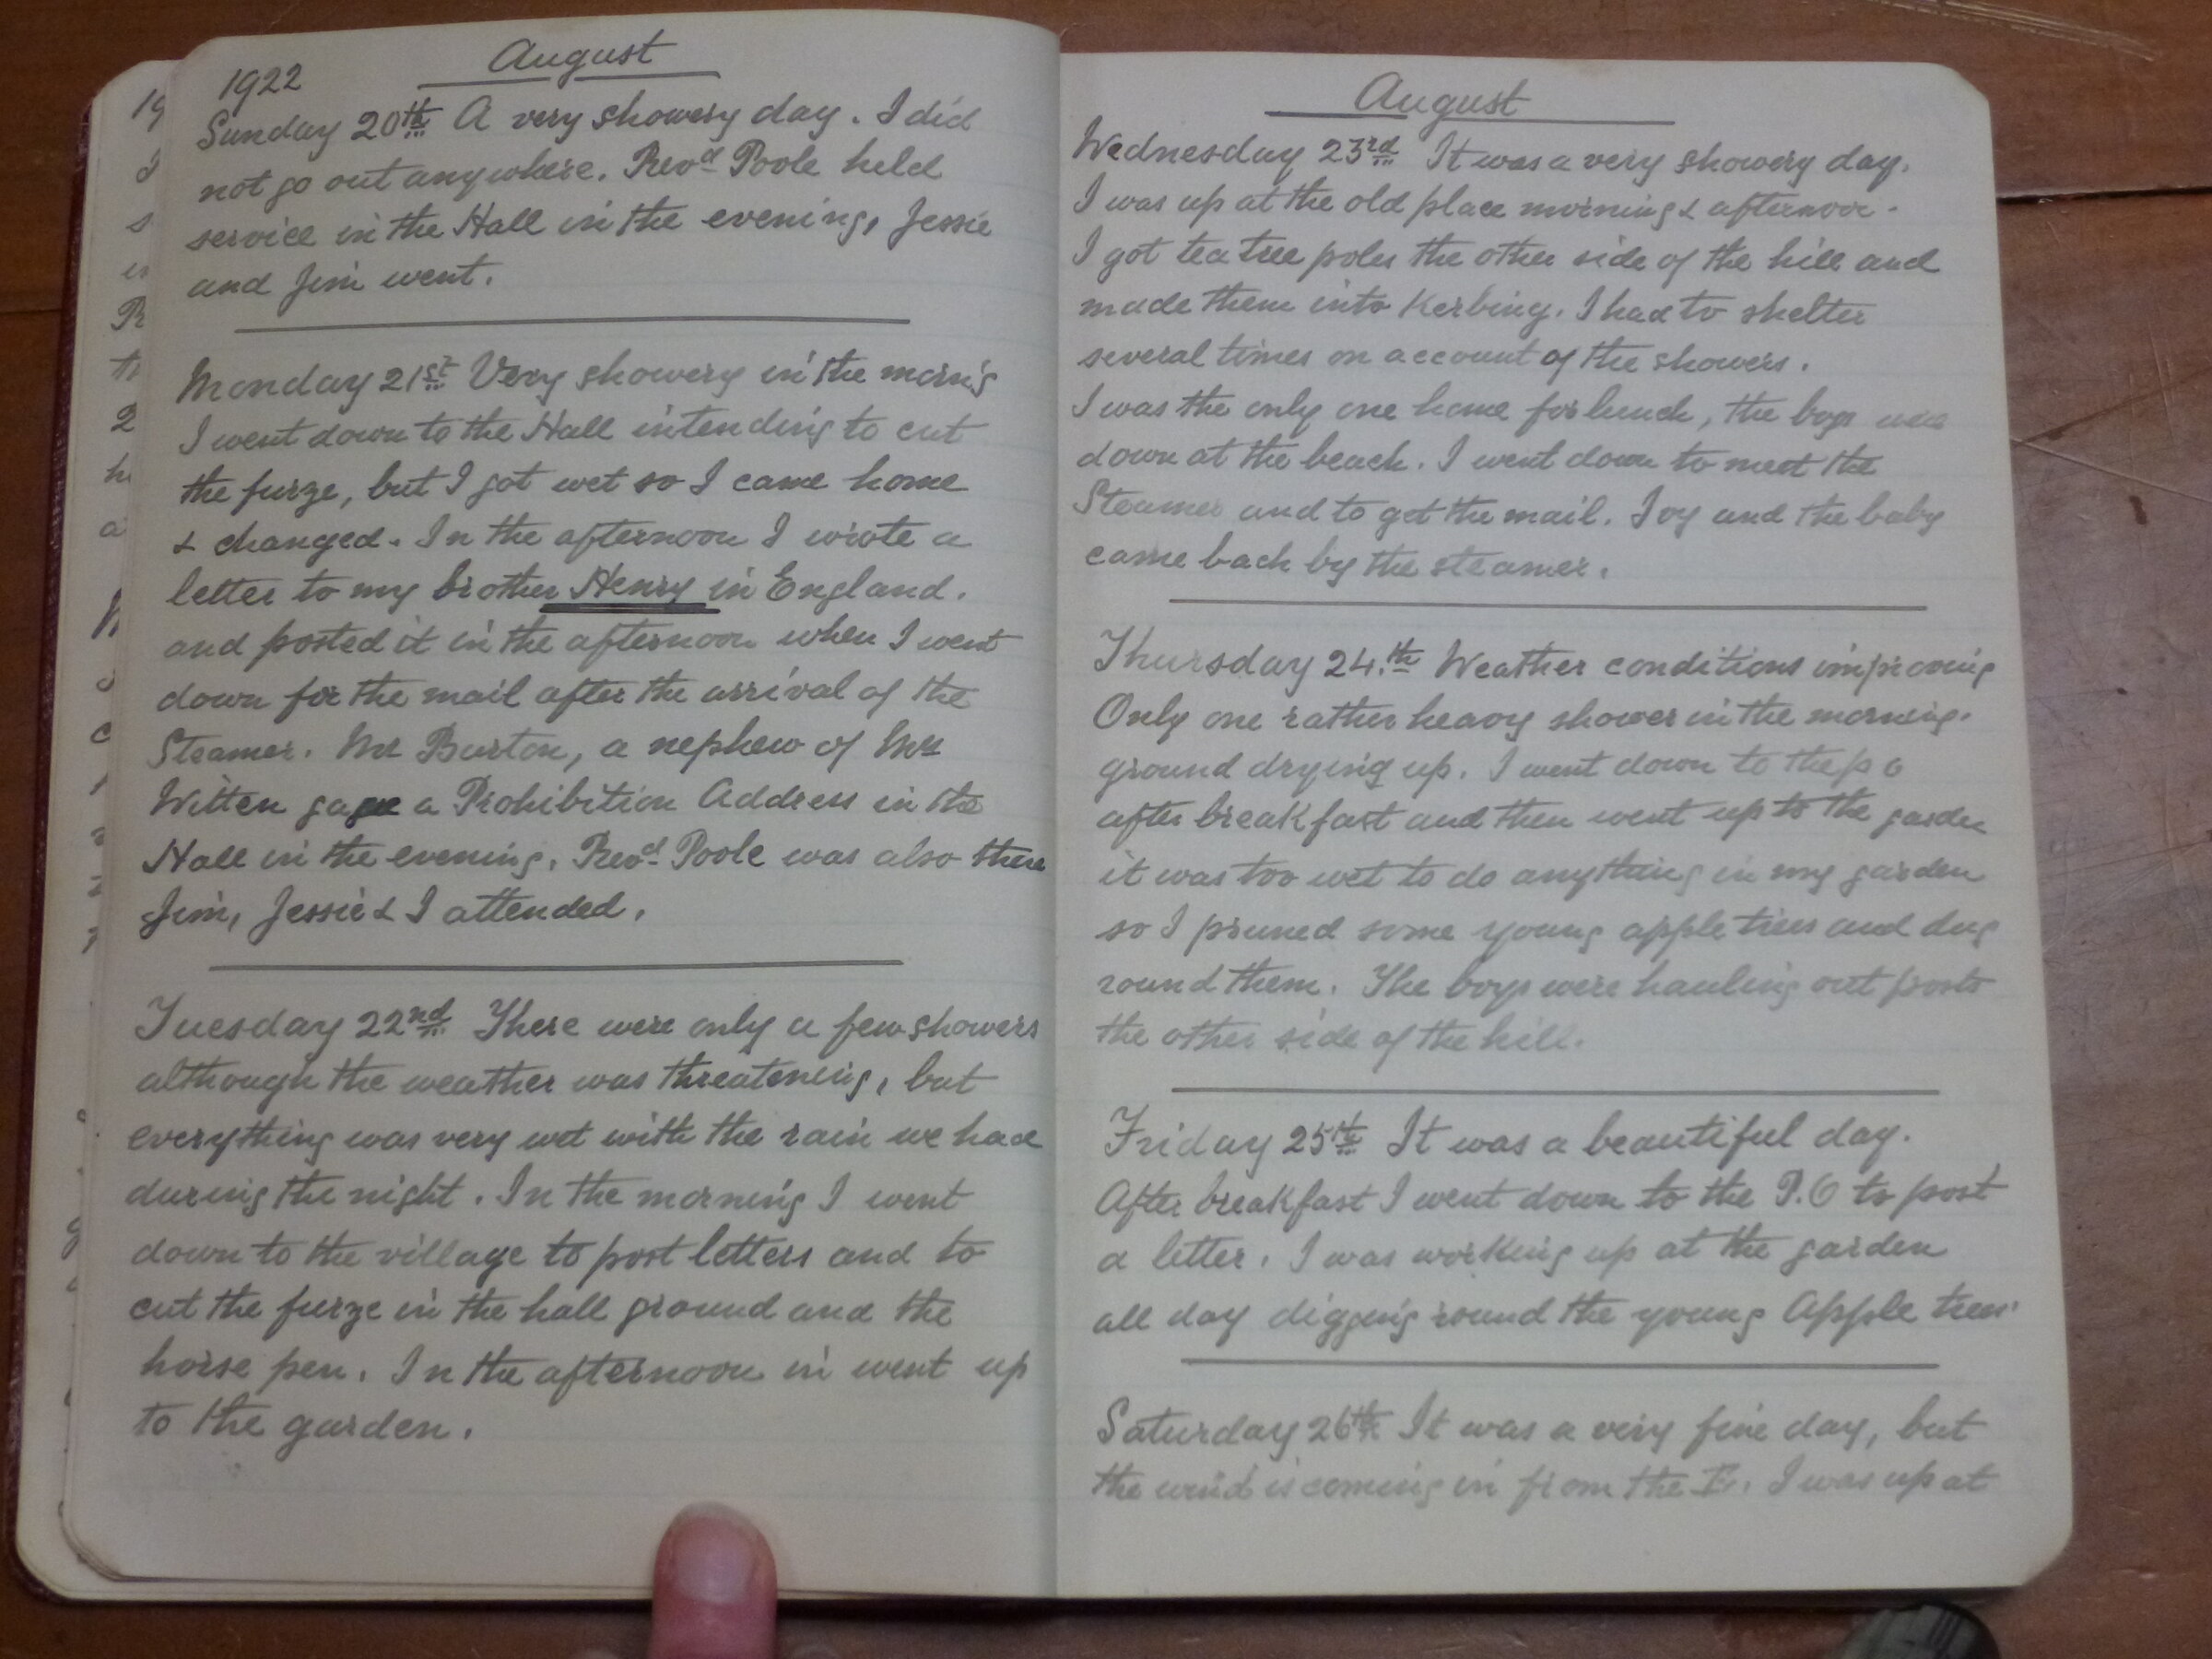 1922
August
Sunday 20th A very showery day. I did
not go out anywhere. Revd Poole held
service in the Hall in the evening, Jessie
and Jim went.
Monday 21st Very showery in the morng
I went down to the Hall intending to cut
the furze, but I got wet so I came home
& changed. In the afternoon I wrote a
letter to my brother Henry in England.
and posted it in the afternoon when I went
down for the mail after the arrival of the
Steamer. Mr Burton, a nephew of Mrs
Witten gave a Prohibition Address in the
Hall in the evening. Revd Poole was also there
Jim, Jessie & I attended.
Tuesday 22nd There were only a few showers
although the weather was threatening, but
everything was very wet with the rain we had
during the night. In the morning I went
down to the village to post letters and to
cut the furze in the hall ground and the
horse pen. In the afternoon in went up
to the garden.
August
Wednesday 23rd It was a very showery day.
I was up at the old place morning & afternoon.
I got tea tree poles the other side of the hill and
made them into Kerbing. I had to shelter
several times on account of the showers.
I was the only one home for lunch, the boys were
down at the beach. I went down to meet the
Steamer and to get the mail. Ivy and the baby
came back by the steamer.
Thursday 24.th Weather conditions improving
Only one rather heavy shower in the morning.
ground drying up. I went down to the p o
after breakfast and then went up to the garden
it was too wet to do anything in my garden
so I pruned some young apple trees and dug
round them. The boys were hauling out posts
the other side of the hill.
Friday 25th It was a beautiful day.
After breakfast I went down to the P.O to post
a letter. I was working up at the garden
all day digging round the young Apple trees
Saturday 26th It was a very fine day, but
the wind is coming in from the E. I was up at